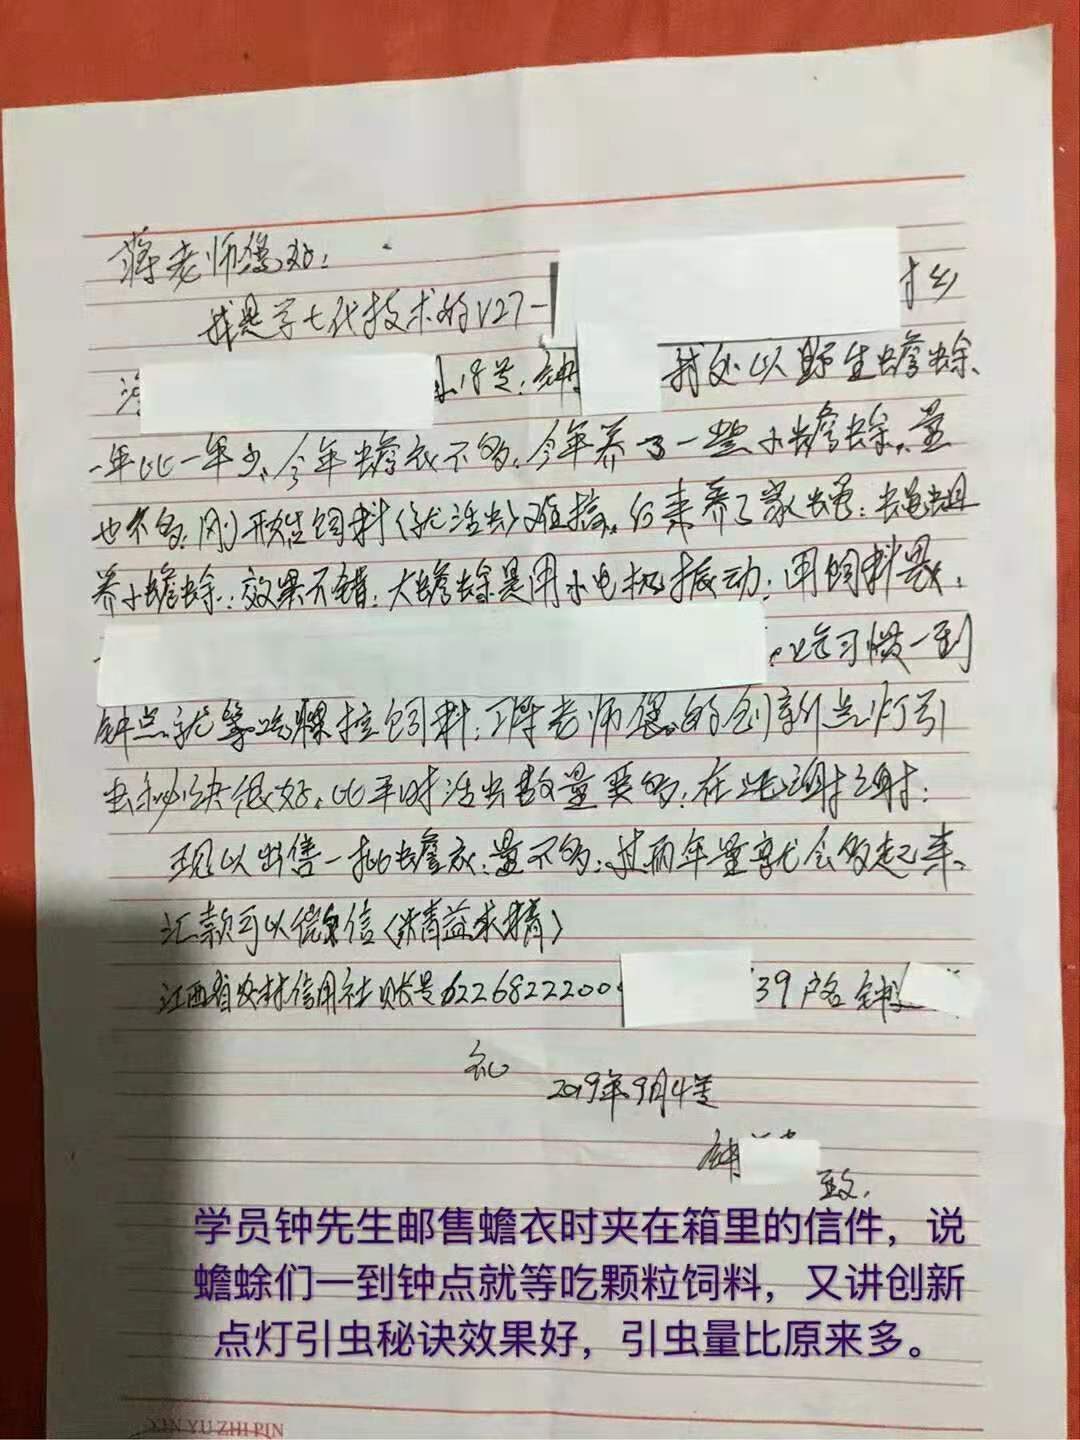 蒋老师您好：
我是学七代技术的V27- 村乡
18号，钟 我处以野生蟾蜍
一年比一年少，今年蟾衣不多，今年养了一些小蟾蜍，量
也不多，刚开始饲料（就活虫）难搞，后来养了家蝇：蝇蛆
养小蟾蜍：效果不错：大蟾蜍是用小电机振动：用饲料
习惯一到
钟点就等吃颗粒饲料：蒋老师您的创新点灯引
虫秘诀很好，比平时活虫数量要多：在此谢谢：
现以出售一批蟾衣：量不多：过两年量就会多起来、
汇款可以微信（精益求精）
江西省农村信用社账号622682220 39户名 钟
礼
2019年9月4号
钟
致、
学员钟先生邮售蟾衣时夹在箱里的信件，说
蟾蜍们一到钟点就等吃颗粒饲料，又讲创新
点灯引虫秘诀效果好，引虫量比原来多。
XIN YU ZHI PIN